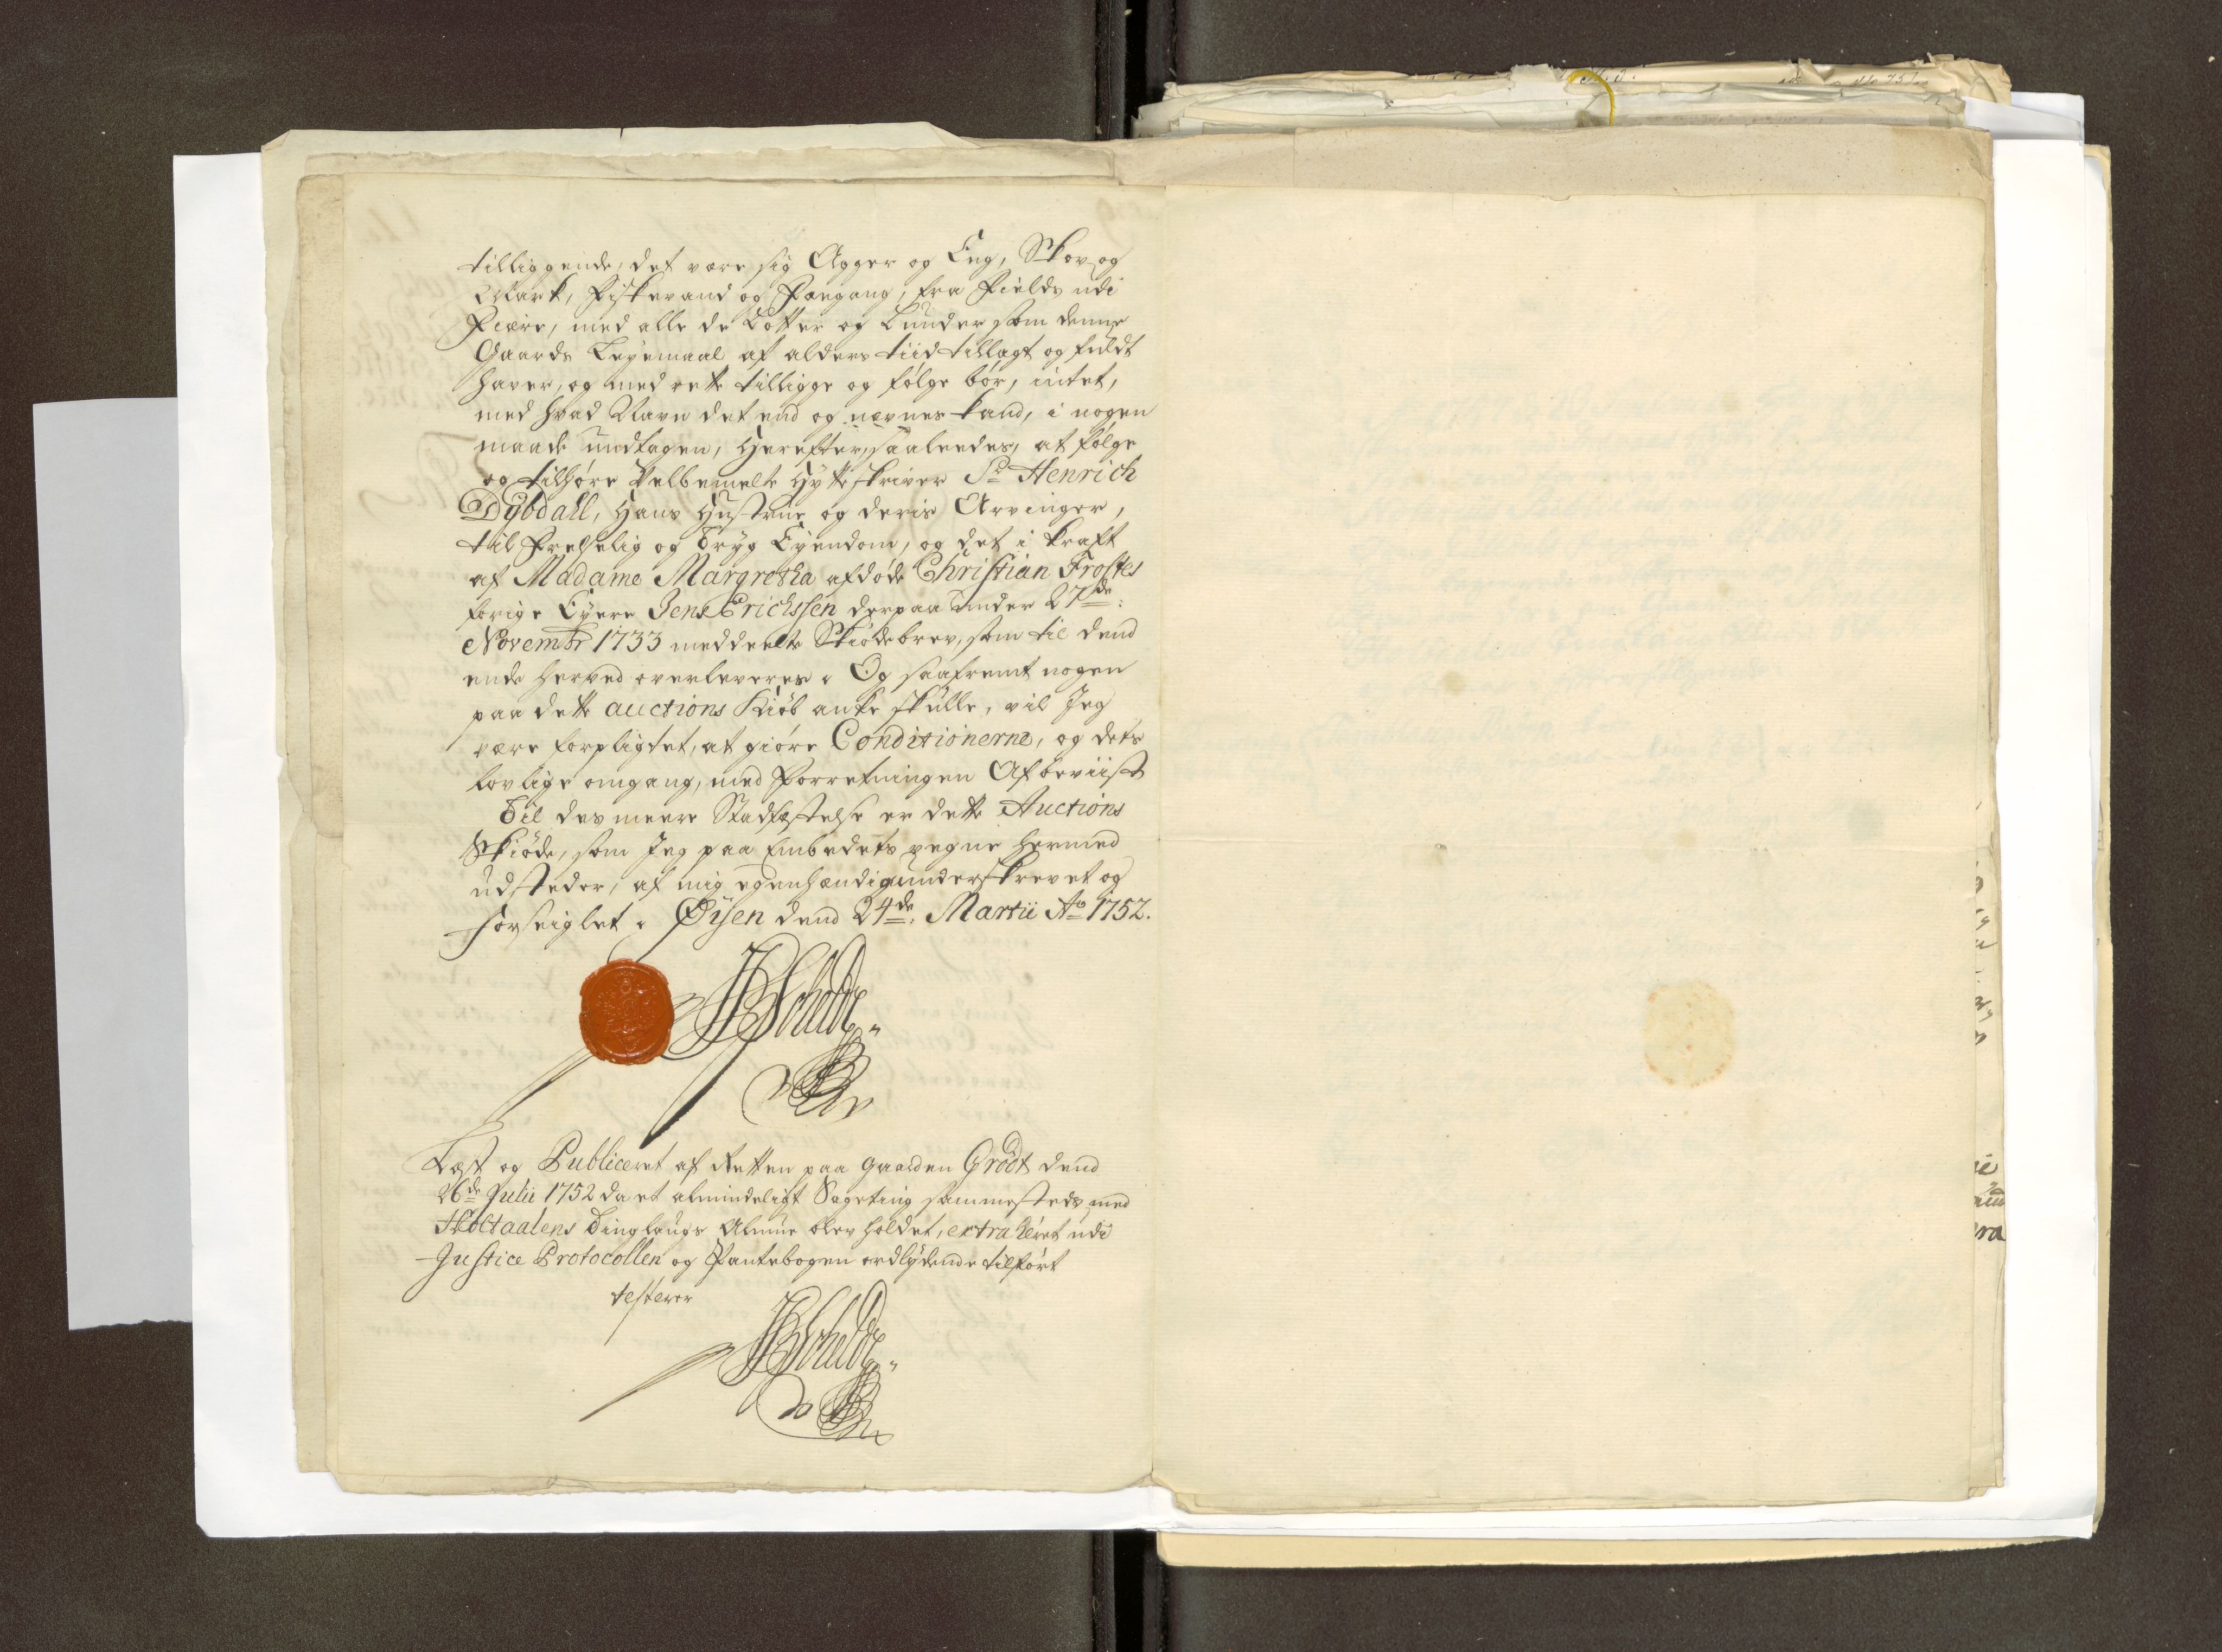 tilliggende, det være sig Agger og Eng, Skov og
Mark, Fiskevand og Fægang, fra Fields udi
Fiære, med alle de Lotter og Lunder som denne
Gaards Leyemaal af alders tiid tillagt og fuldt
haver, og med rette tilligge og følge bør, intet,
med hvad Navn det end og nævnes kand, i nogen
maade undtagen, Herefter, saaleedes, at følge
og tilhøre Velbemelte Hytteskriver Sr Henrich
Dybdall, Hans Hustrue og deris Arvinger,
til Frelselig og Tryg Eyendom, og det i kraft
af Madame Margretha afdøde Christian Frostes
forige Eyere Jens Erichssen derpaa under 27de:
Novembr 1733 meddeelte Skiødebrev, som til dend
ende herved overleveres. Og saafremt nogen
paa dette auctions Kiøb anke skulle, vil Jeg
være forpligtet, at giøre Conditionerne, og dets
lovlige omgang, med Forretningen Af beviist
Til des meere Stadfæstelse er dette Auctions
Skiøde, som Jeg paa Embedets vegne hermed
udsteder, af mig egenhændig underskrevet og
forseiglet. Øisen dend 24de: Martii Ao 1752.
Læst og Publiceret af Retten paa gaarden Grødt dend
26de Julii 1752 da et almindeligt Sageting sammesteds med
Holtaalens Tinglaugs Almue blev holdet, extraheret udi
Justice Protocollen og Pantebogen ordlydende tilført
testerer